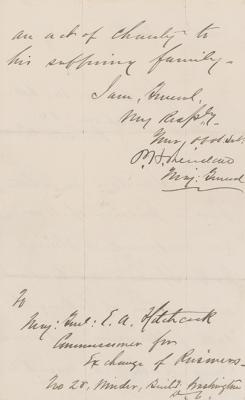 an act of Charity to
his suffering family.
I am, General,
Very Resply.
Your Obdt Svt.
P. H. Sheridan
Maj: General
To
Maj: Genl: E. A. Hitchcock
Commissioner for
Exchange of Prisoners.
No 28, Winder, Build, Washington
D. C.